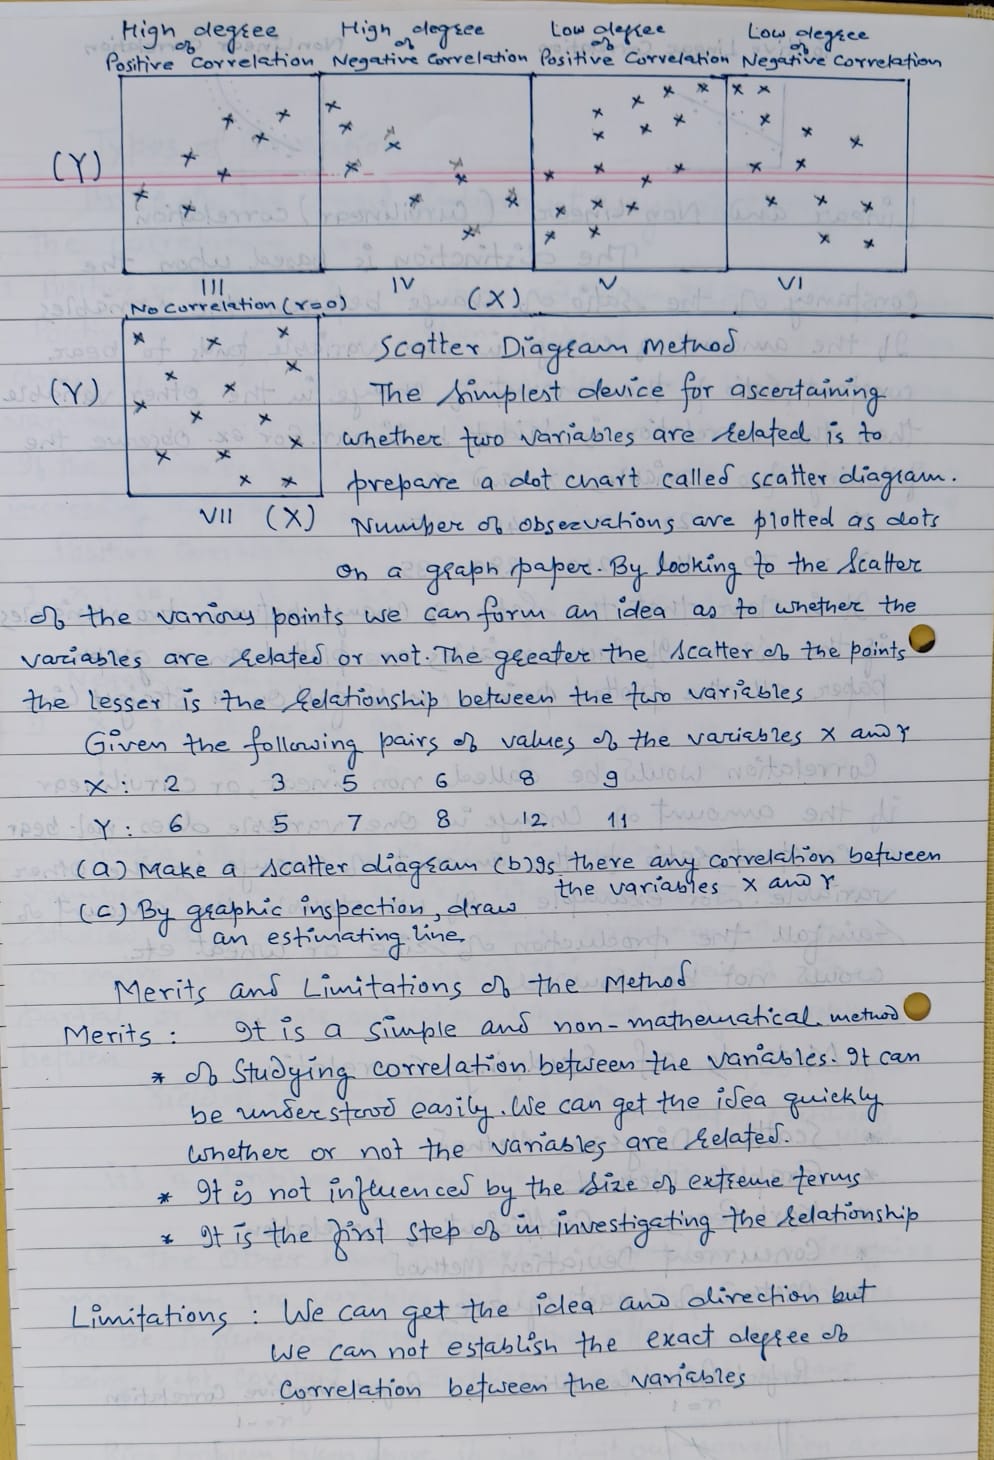 High degree of Positive Correlation
High degree of Negative Correlation
Low degree of Positive Correlation
Low degree of Negative Correlation
(Y)
III
IV
(X)
V
VI
No Correlation (r=0)
(Y)
VII (X)
Scatter Diagram Method
The simplest device for ascertaining
whether two variables are related is to
prepare a dot chart called scatter diagram.
Number of observations are plotted as dots
on a graph paper. By looking to the scatter
of the various points we can form an idea as to whether the
variables are related or not. The greater the scatter of the points
the lesser is the relationship between the two variables
Given the following pairs of values of the variables X and Y
X : 2 3 5 6 8 9
Y : 6 5 7 8 12 11
(a) Make a scatter diagram (b) Is there any correlation between
the variables X and Y
(c) By graphic inspection, draw
an estimating line.
Merits and Limitations of the Method
Merits : It is a simple and non-mathematical method
* of studying correlation between the variables. It can
be understood easily. We can get the idea quickly
whether or not the variables are related.
* It is not influenced by the size of extreme terms
* It is the first step of in investigating the relationship
Limitations : We can get the idea and direction but
we can not establish the exact degree of
Correlation between the variables